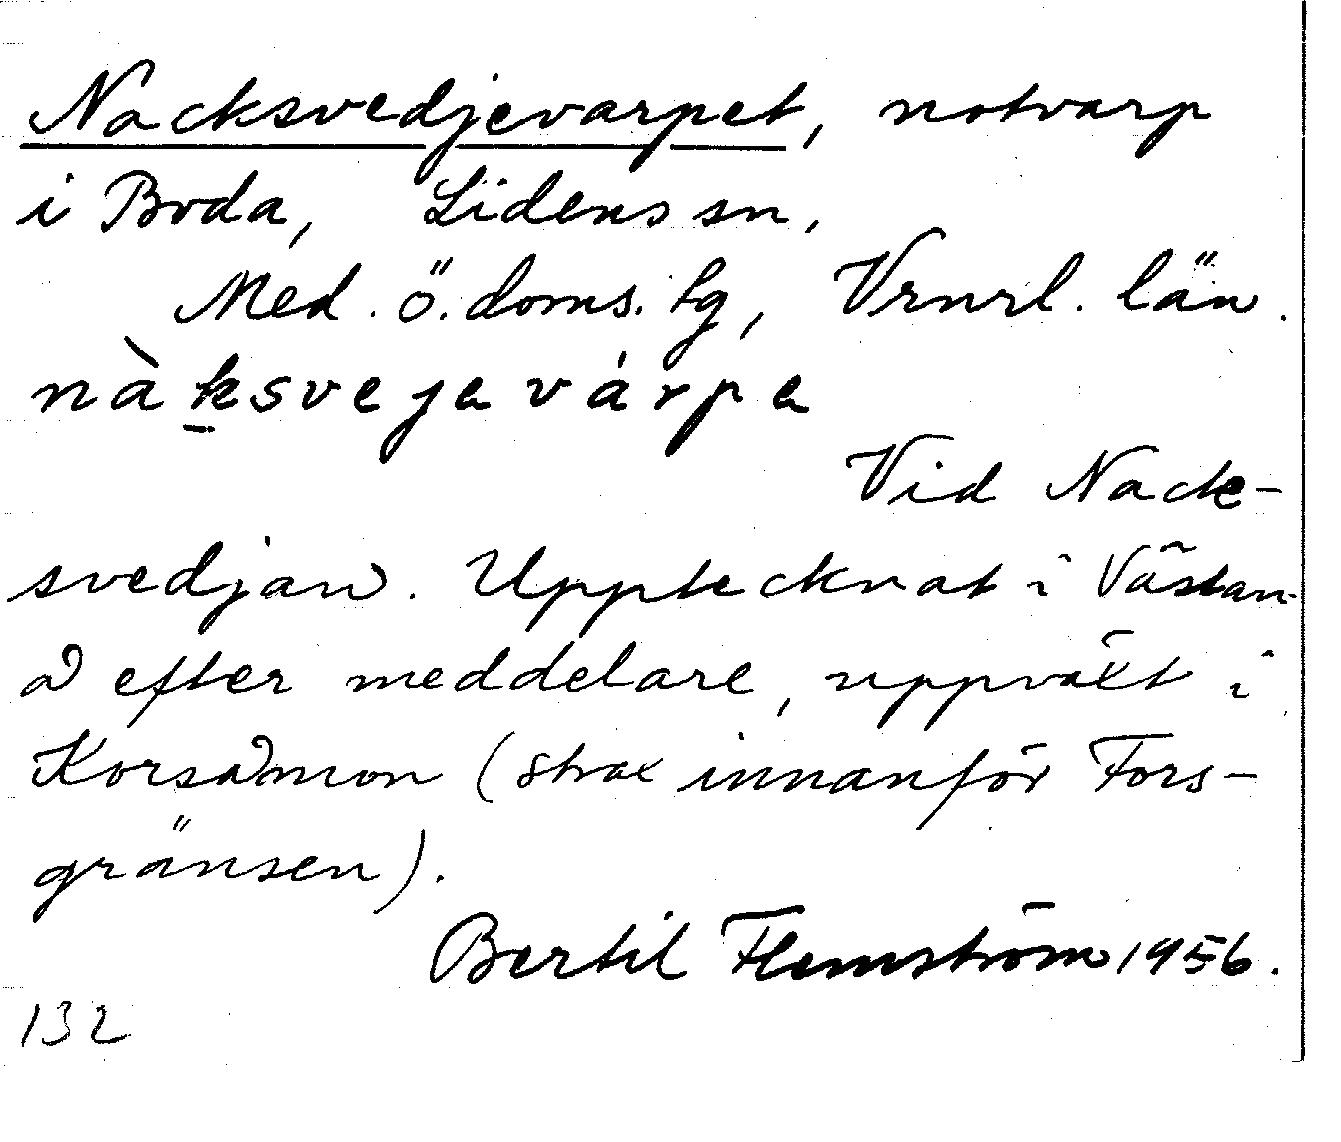 Nacksvedjevarpet, notvarp
i Boda, Lidens sn,
Med. ö. doms. hg, Vrnrl. län.
nàksvejevárpe
Vid Nack-
svedjan. Upptecknat i Västan-
å efter meddelare, uppväxt i
Korsåmon (strax innanför Fors-
gränsen).
Bertil Flemström 1956.
132